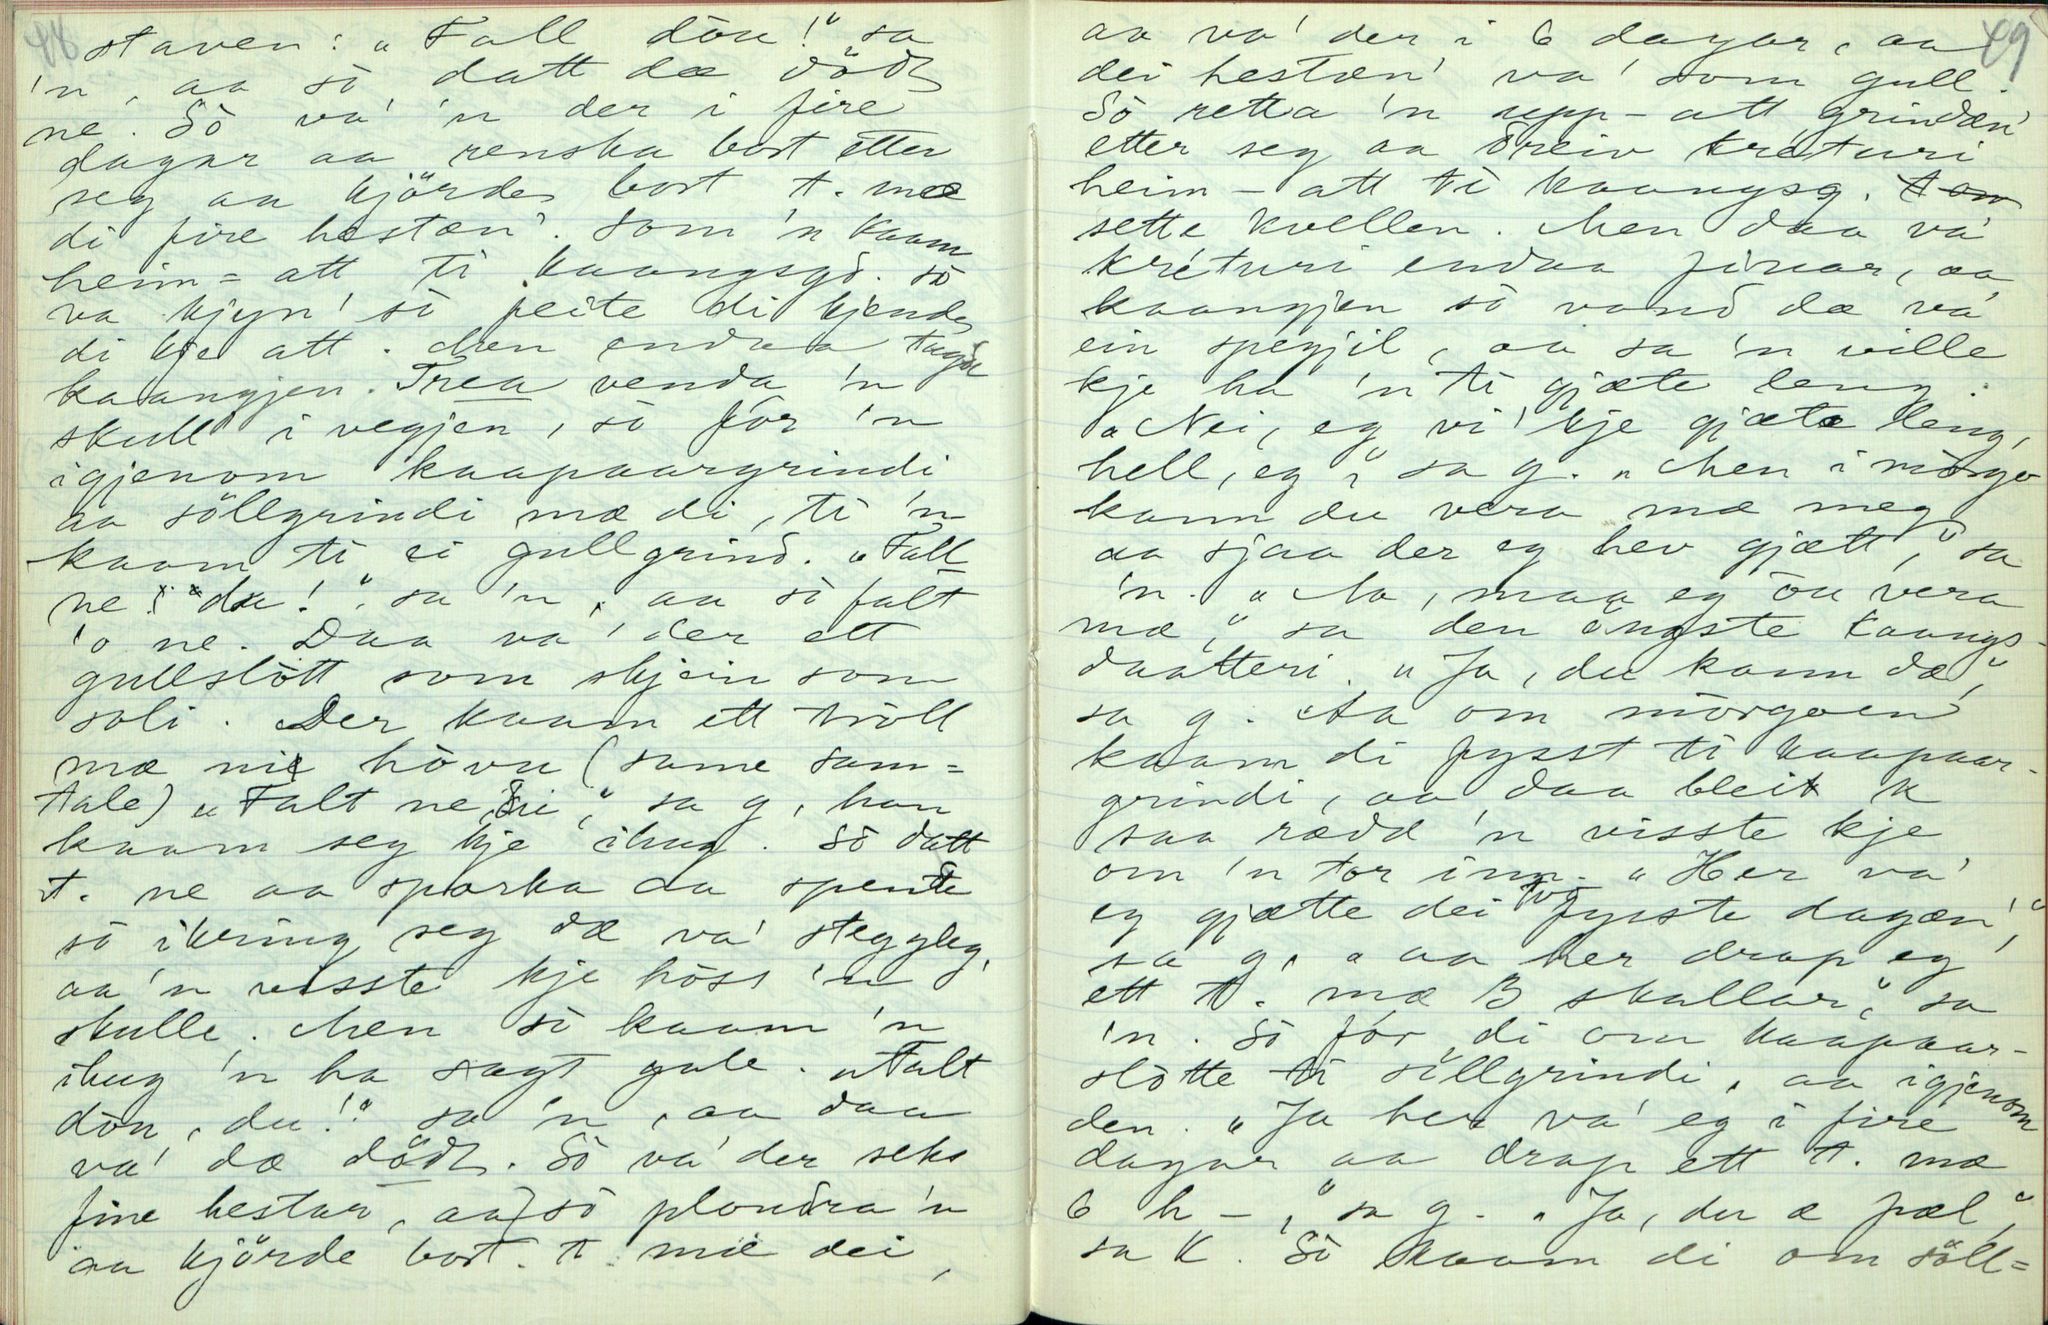 48
staven: „Fall dön!" sa
'n, aa sò datt dæ dödt
ne. Sò va' 'n der i fire
dagar aa renska bort etter
seg aa kjörde bort t. mæ
di fire hestæn'. Som 'n kaam
heim = att ti kaangsgò. sò
va kjyn' sò feite di kjende
di kje att. Men endaa tagde
kaangjen. Trea venda 'n
skull' i vegjen, sò fór 'n
igjenom kaapaargrindi
aa söllgrindi mæ di, ti 'n
kaam ti ei gullgrind. „Fall
ne du!", sa 'n, aa sò falt
'o ne. Daa va' der ett
gullslòtt som skjein som
soli. Der kaam ett tròll
mæ nie hòvu (same sam=
tale) „Falt ne di", sa g, han
kaam seg kje ihug. Sò datt
t. ne aa sparka aa spende
sò ikring seg dæ va' steggleg,
aa 'n visste kje höss 'n
skulle. Men sò kaam 'n
ihug 'n ha sagt gale. „Falt
dön, du!" sa 'n, aa daa
va' dæ dödt. Sò va' der seks
fine hestar, aa sò plondra 'n
aa kjörde bort t. mæ dei,
49
aa va' der i 6 dagar, aa
dei hestæn' va' som gull.
Sò retta 'n upp-att grindæn'
etter seg aa dreiv kréturi
heim-att ti kaangsg.
sette kvellen. Men daa va'
kréturi endaa finar, aa
kaangjen sò vond dæ va'
ein spegjil, aa sa 'n ville
kje ha 'n ti gjæte leng.
„Nei, eg vi' kje gjæte leng,
hell, eg", sa g. „Men i mòrgo
kann du vera mæ meg
aa sjaa der eg hev gjætt", sa
'n. „Aa, maa eg òu vera
mæ," sa den òngste kaangs-
daatteri. „Ja, du kann dæ,"
sa g. Aa om mòrgoen
kaam di fysst ti kaapaar-
grindi, aa daa bleit k
saa rædd 'n visste kje
om 'n tor inn. „Her va'
eg gjætte dei tvo fysste dagæn',"
sa g, „aa her drap eg
ett t. mæ 3 skallar", sa
'n. Sò fór di om kaapaar-
slòtte ti söllgrindi, aa igjenom
den. „Ja her va' eg i fire
dagar aa drap ett t. mæ
6 h-," sa g. „Ja, du æ fæl",
sa K. Sò kaam di om söll=